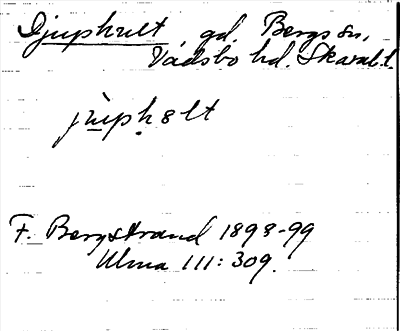 Djuphult, gd. Bergs sn,
Vadsbo hd. Skarab.l.
jùphȣlt
F. Bergstrand 1898-99
Ulma 111:309.